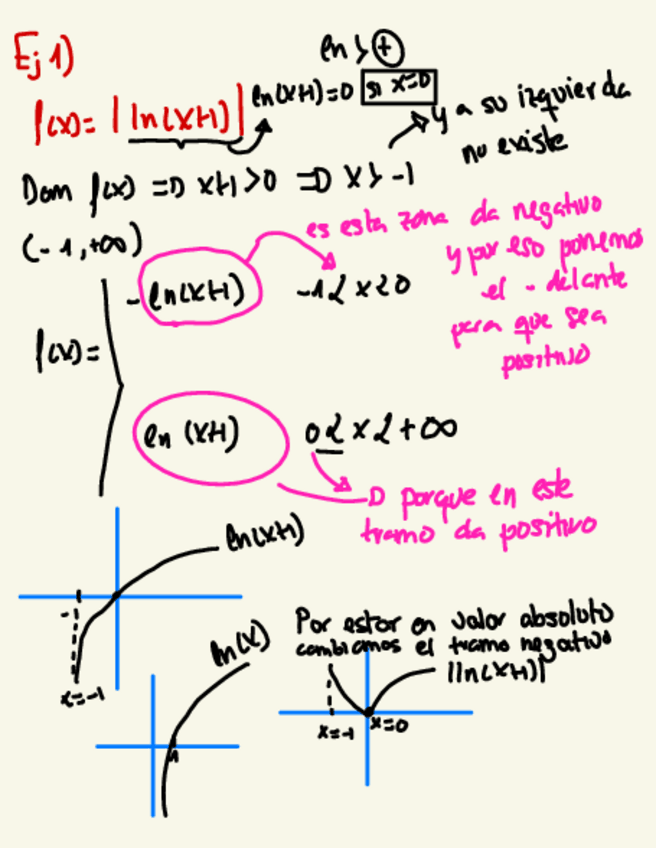 Ej 1)
ln > +
f(x) = |ln(x+1)| ln(x+1)=0 si x=0
y a su izquierda
no existe
Dom f(x) => x+1>0 => x > -1
(-1,+∞)
es esta zona da negativo
y por eso ponemos
el - delante
para que sea
positivo
- ln(x+1) -1 < x < 0
f(x) =
ln (x+1) 0 ≤ x < +∞
porque en este
tramo da positivo
ln(x+1)
x=-1
ln(x)
1
Por estar en valor absoluto
cambiamos el tramo negativo
|ln(x+1)|
x=-1 x=0